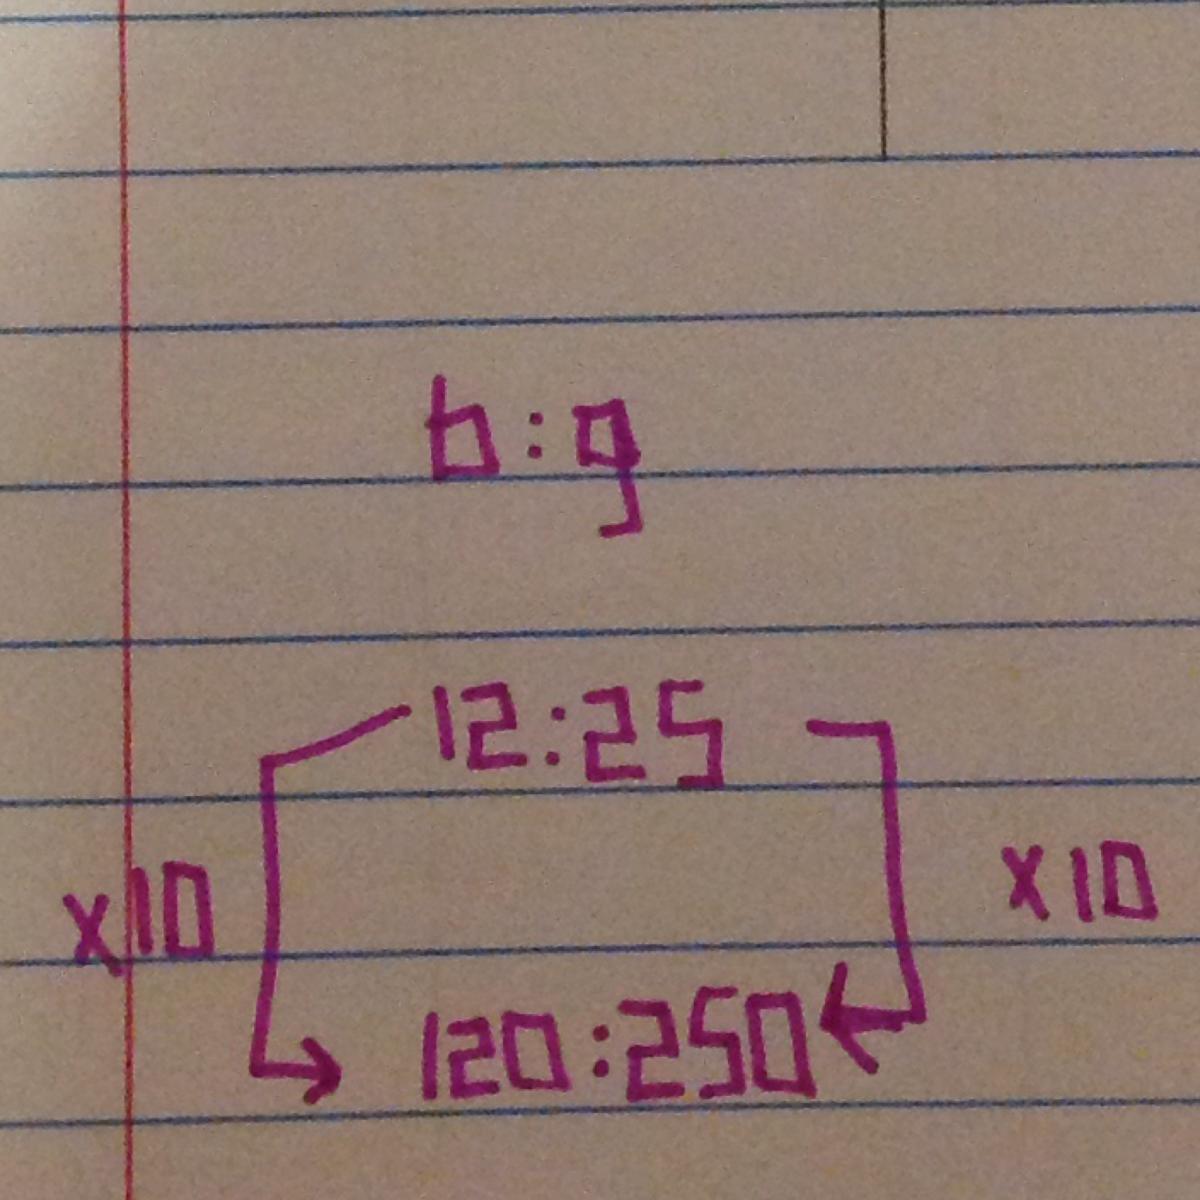 b:g
12:25
x10 x10
120:250